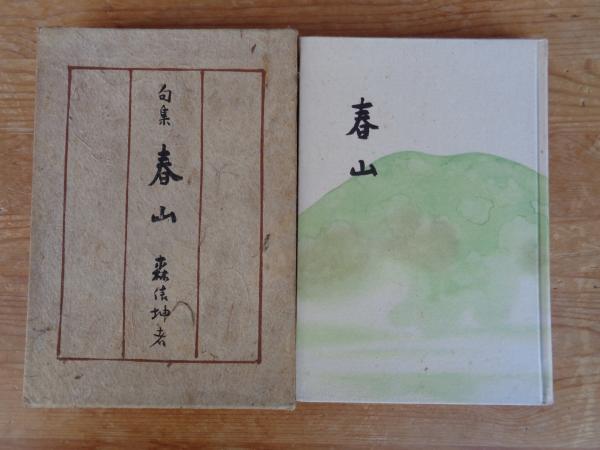 句集 春山 森信坤者
春山